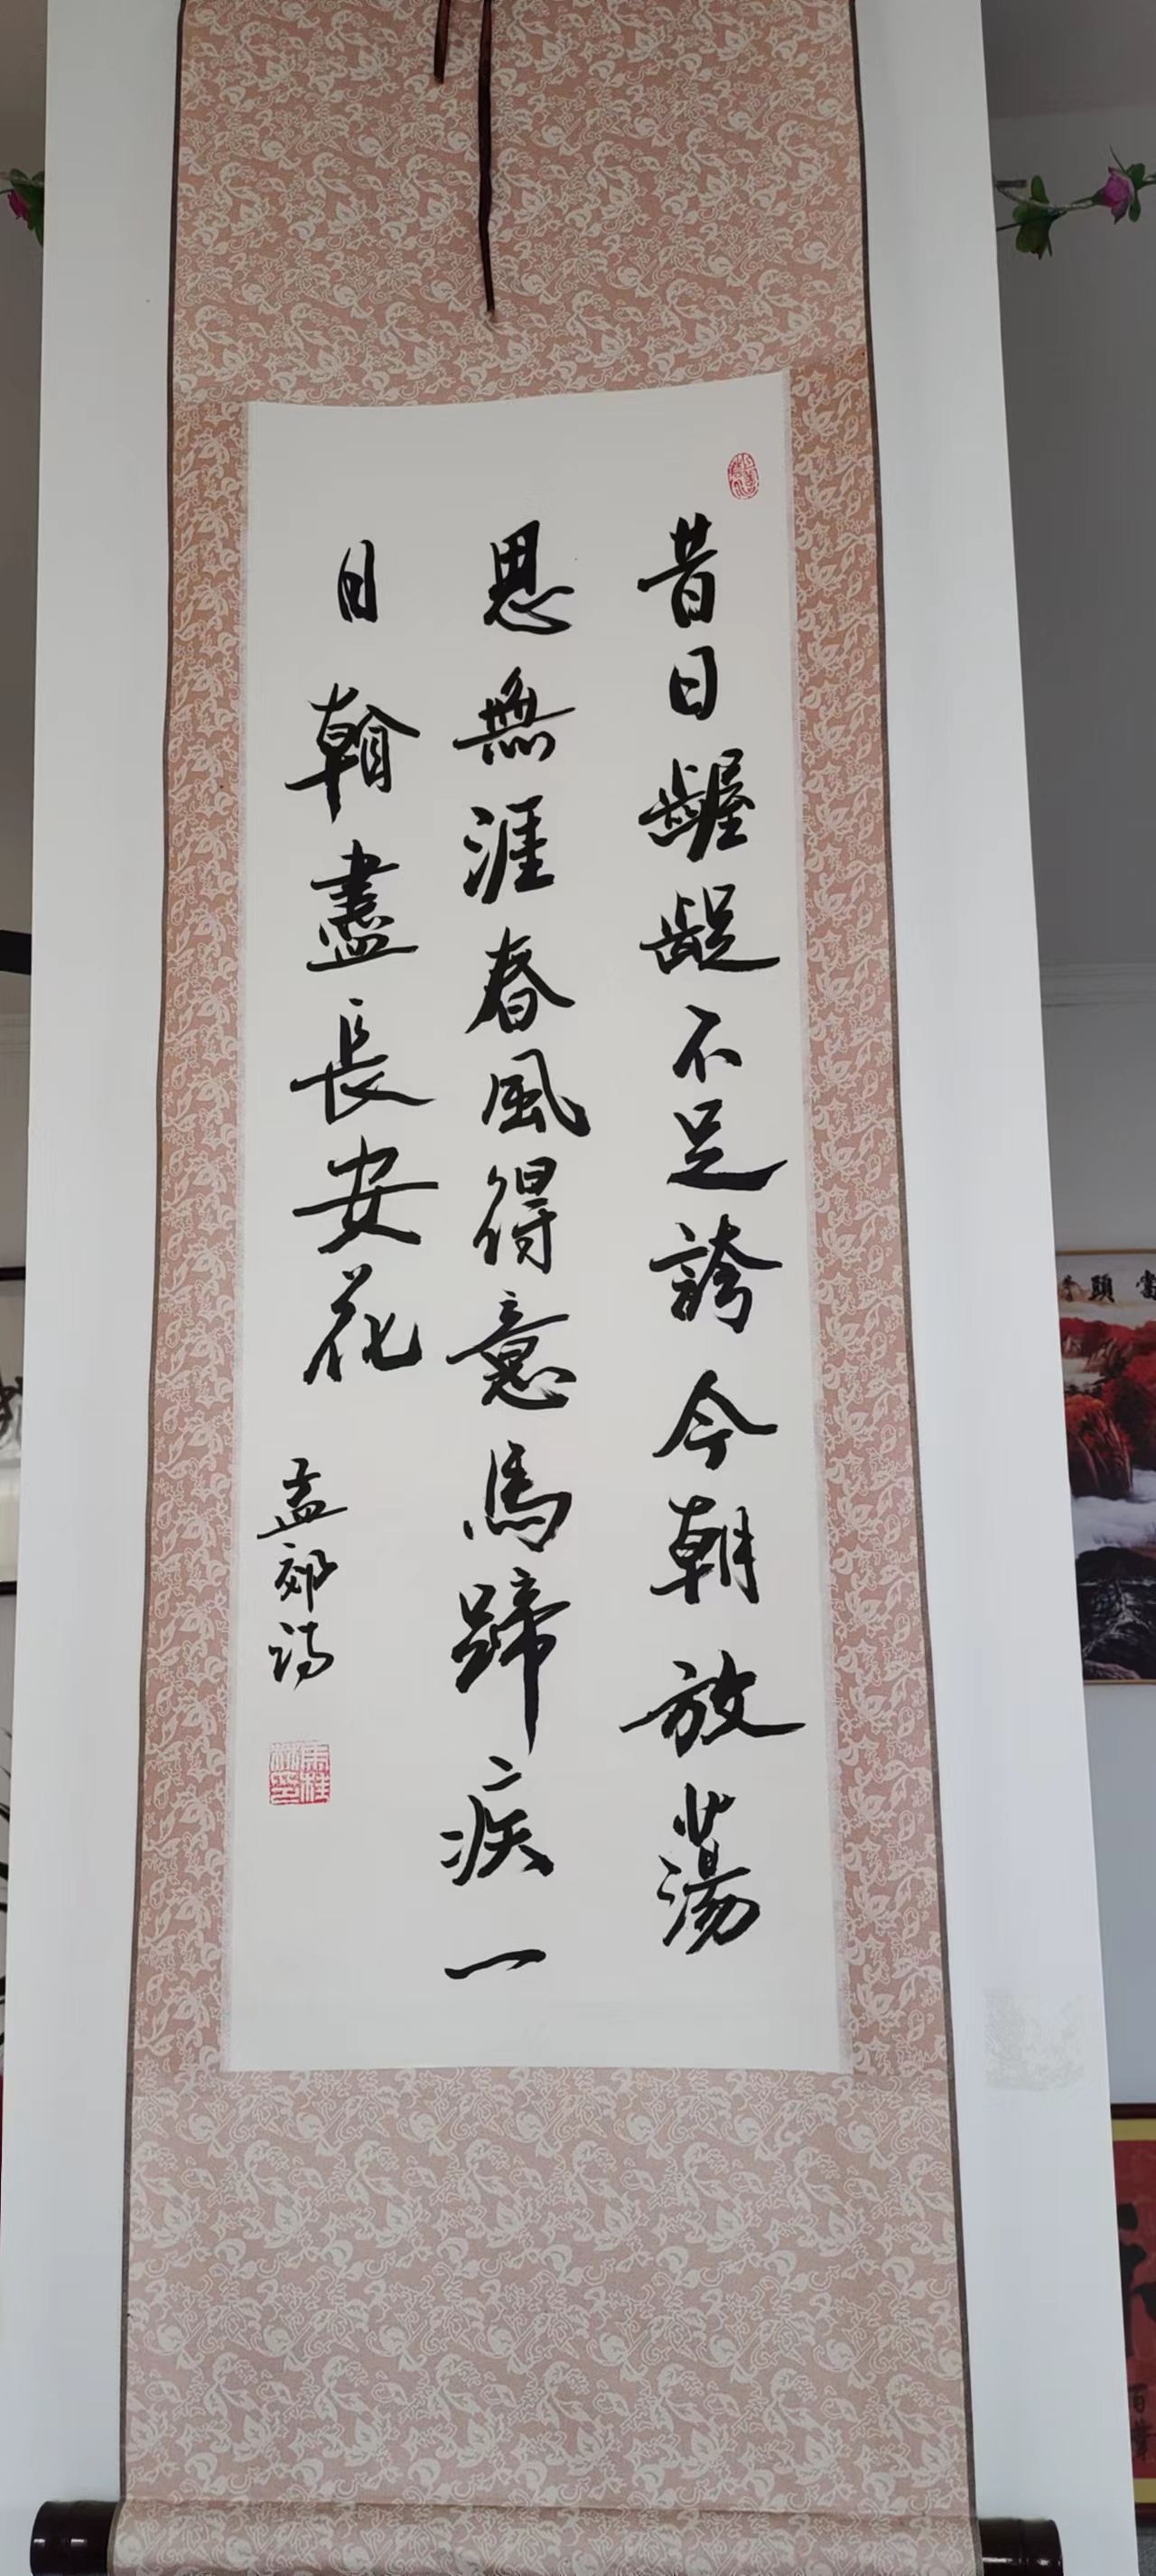 昔日齷齪不足誇今朝放蕩
思無涯春風得意馬蹄疾一
日看盡長安花
孟郊詩
頭